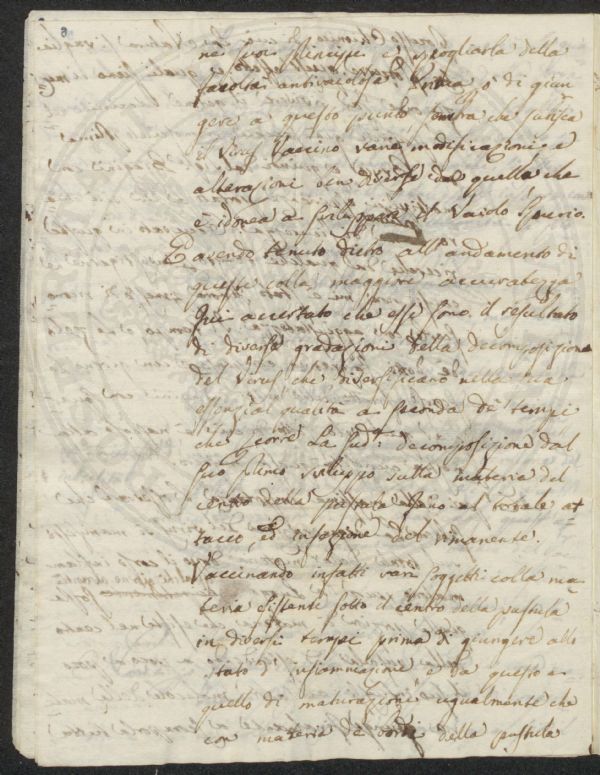 6
ne suoi Principj e spogliarla della
facoltà antivaiolosa. Prima di giun
gere a questo punto sembra che subisca
il Virus Vaccino varie modificazioni e
alterazioni ben diverse da quella che
è idonea a sviluppare il Vaiolo Spurio.
E avendo tenuto dietro all'andamento di
queste colla maggiore accuratezza
accertato che esse sono il resultato
di diverse gradazioni della decomposizione
del Virus che diversificano nella sua
essenzial qualità a seconda de tempi
che scorre la sudta. decomposizione dal
suo primo sviluppo sulla materia del
centro della pustula fino al totale at
tacco, ed infezione del rimanente.
Vaccinando infatti vari soggetti colla ma
teria esistente sotto il centro della pustula
in diversi tempi prima di giungere allo
stato d'infiammazione e da questo a
quello di maturazione ugualmente che
con materia de bordi della pustula